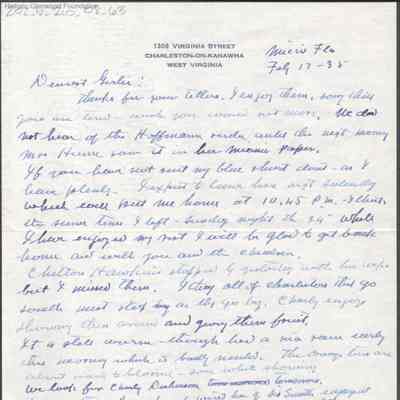 Historic Glenwood Foundation
1308 VIRGINIA STREET
CHARLESTON-ON-KANAWHA
WEST VIRGINIA
Micco Fla
Feby 17 - 35
Dearest Girlie:
Thanks for your letters. I enjoy them, sorry this
you are and you cannot rest more. We did
not hear of the Hoffmann until the next morning
Mrs saw it in her Miami paper.
If you have not sent my blue shirt dont - as I
have plenty. I expect to leave here next Saturday
which will put me home at 10,45 P.M. I think,
the same time I left - Sunday night the 24" While
I have enjoyed my rest I will be glad to get back
home and with you and the children.
Chilton stopped by yesterday with his wife
but I missed them. I think all of Charleston that go
south must stop by as they go by. Charly enjoys
showing them around and giving them fruit,
It is still warm - though had a nice rain early
this morning which is badly needed. The orange trees are
about ready to bloom - some white showing
We look for Charly Dickinson tomorrow,
of his Smith, enjoyed